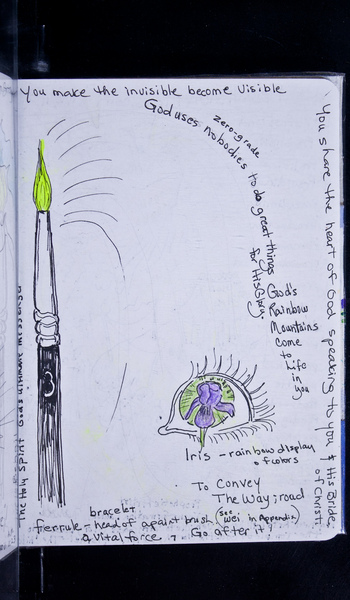 You make the invisible become visible
God uses nobodies to do great things
zero-grade
for His Glory
You share the heart of God speaking to you & His Bride,
of Christ
God's
Rainbow
Mountains
come
to
Life
in
you
Iris - rainbow display
of colors
To Convey
The Way; road
(see wei in Appendix)
bracelet
ferrule - head of a paint brush
a vital force. Go after it!
The Holy Spirit God's ultimate messenger
3